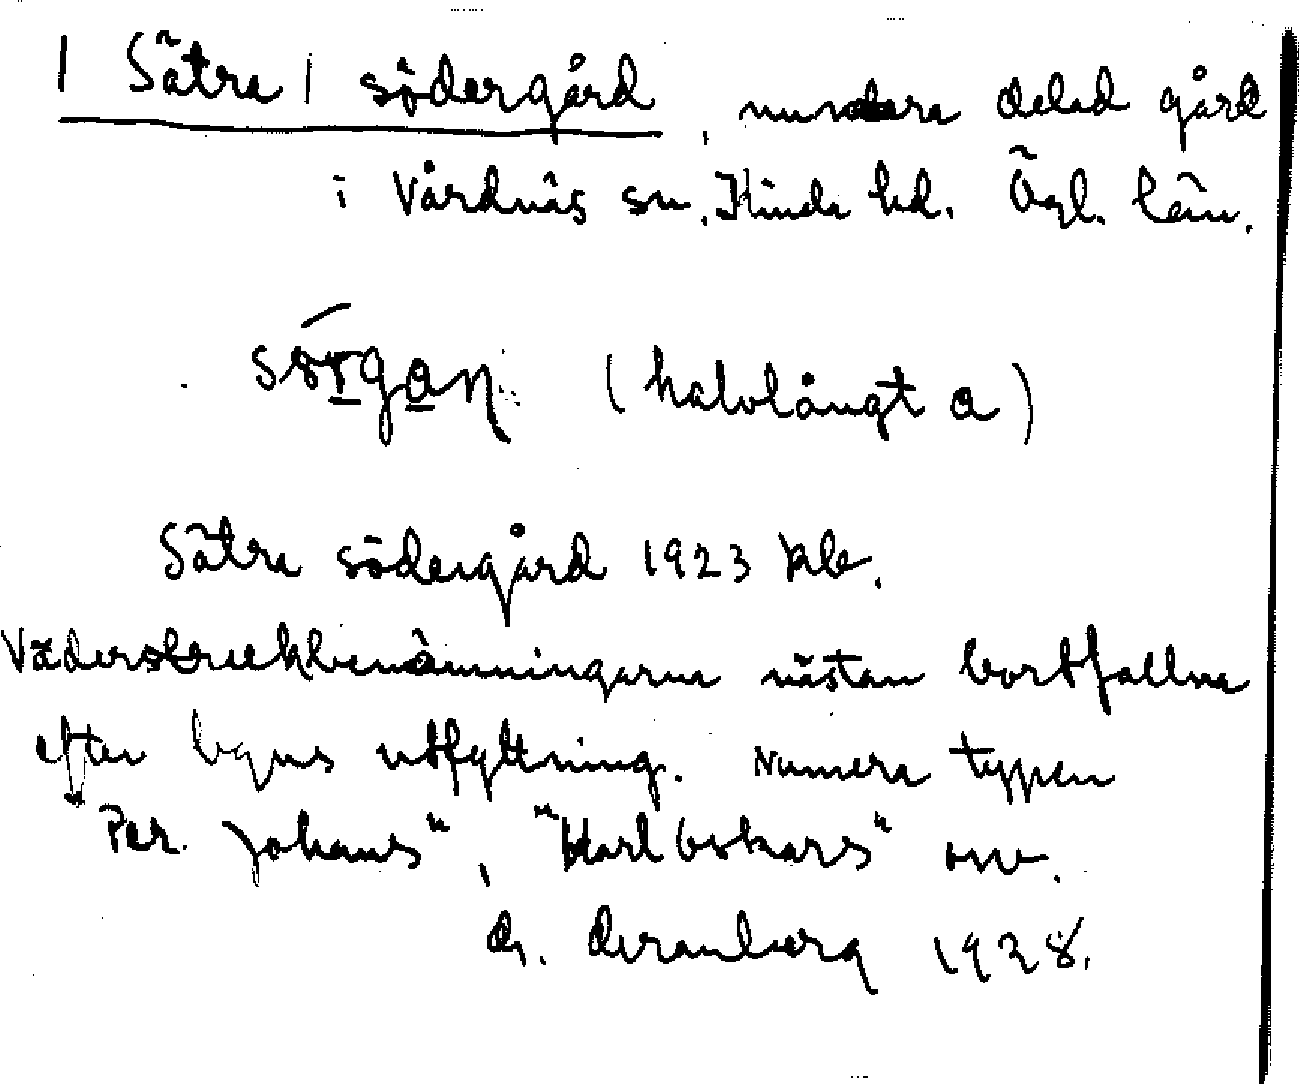 | Sätra | södergård, numera delad gård
i Vårdnäs sn. Kinda hd. Ögl. län.
sörgan (halvlångt a)
Sätra södergård 1923 kb.
Väderstreckbenämningarna nästan bortfallna
efter byns utflyttning. Numera typen
"Per Johans", "Karl Oskars" osv.
1928.